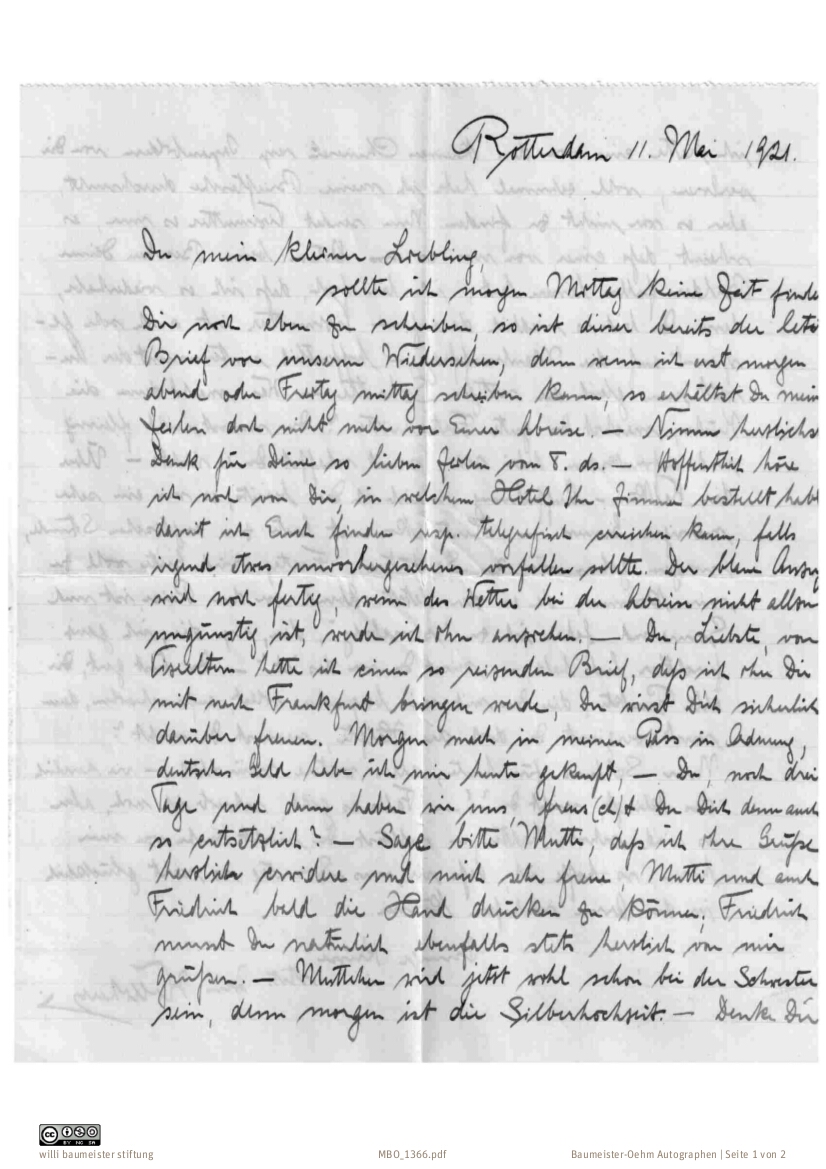 Rotterdam 11. Mai 1921.
Du mein kleiner Liebling,
sollte ich morgen Mittag keine Zeit finde
Dir noch eben zu schreiben, so ist dieser bereits der letz
Brief vor unserm Wiedersehen, denn wenn ich erst morgen
abend oder Freitag mittag schreiben kann, so erhältst Du mein
Zeilen doch nicht mehr vor Eurer Abreise. — Nimm herzlichs
Dank für Deine so lieben Zeilen vom 8. ds. — Hoffentlich höre
ich noch von Dir, in welchem Hotel Ihr Zimmer bestellt habt
damit ich Euch finden resp. telegrafisch erreichen kann, falls
irgend etwas unvorhergesehenes vorfallen sollte. Der blaue Anzug
wird noch fertig, wenn das Wetter bei der Abreise nicht allzu
ungünstig ist, werde ich ihn anziehen. — Du, Liebste, von
hatte ich einen so reizenden Brief, daß ich ihn Dir
mit nach Frankfurt bringen werde, Du wirst Dich sicherlich
darüber freuen. Morgen mein Pass in Ordnung,
deutsches Geld habe ich mir heute gekauft, — Du, noch drei
Tage und dann haben wir uns, freus(ch)t Du Dich denn auch
so entsetzlich? — Sage bitte Mutti, daß ich ihre Grüße
herzlichst erwidere und mich sehr freue, Mutti und auch
Friedrich bald die Hand drücken zu können, Friedrich
musst Du natürlich ebenfalls stets herzlich von mir
grüßen. — Muttchen wird jetzt wohl schon bei der Schwester
sein, denn morgen ist die Silberhochzeit. — Denke Dir
willi baumeister stiftung
MBO_1366.pdf
Baumeister-Oehm Autographen | Seite 1 von 2